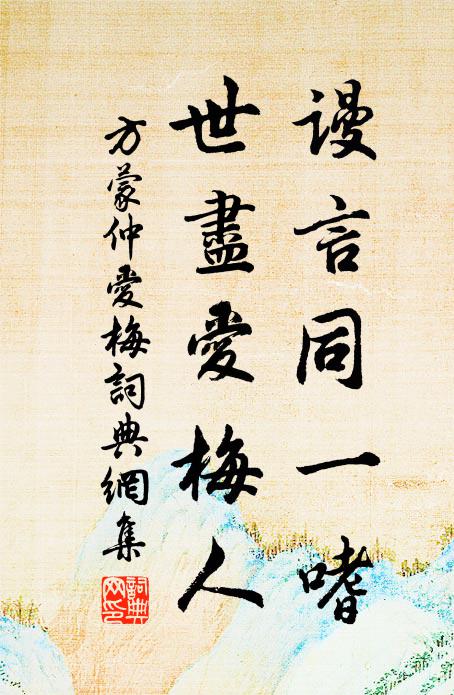 謾言同一嗜
世盡愛梅人
方蒙仲愛梅詞典網集
詞典
网印